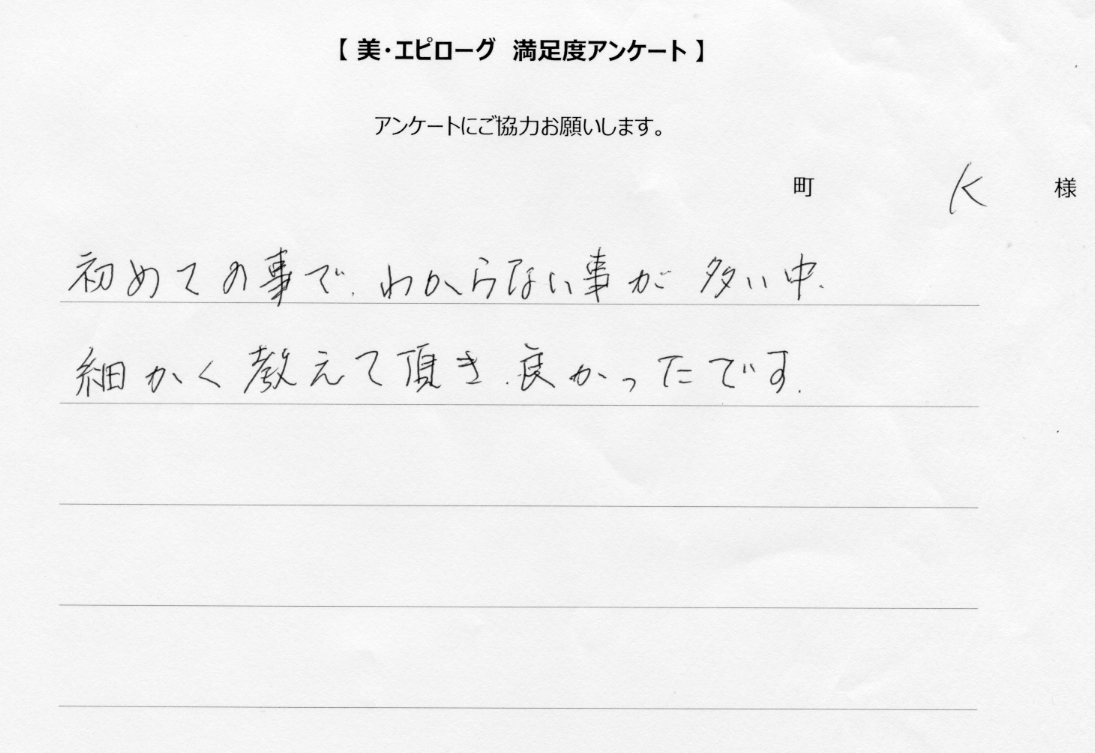 【 美・エピローグ 満足度アンケート 】
アンケートにご協力お願いします。
町 K 様
初めての事で、わからない事が多い中、
細かく教えて頂き、良かったです。